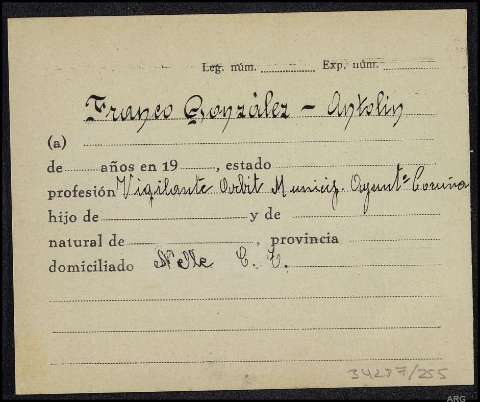 Leg. núm. Exp. núm.
Franco González - Antolin
(a)
de años en 19 , estado
profesión Vigilante Arbit Municip. Ayunt.º Coruña
hijo de y de
natural de , provincia
domiciliado Nelle C. C.
34237/255
ARG